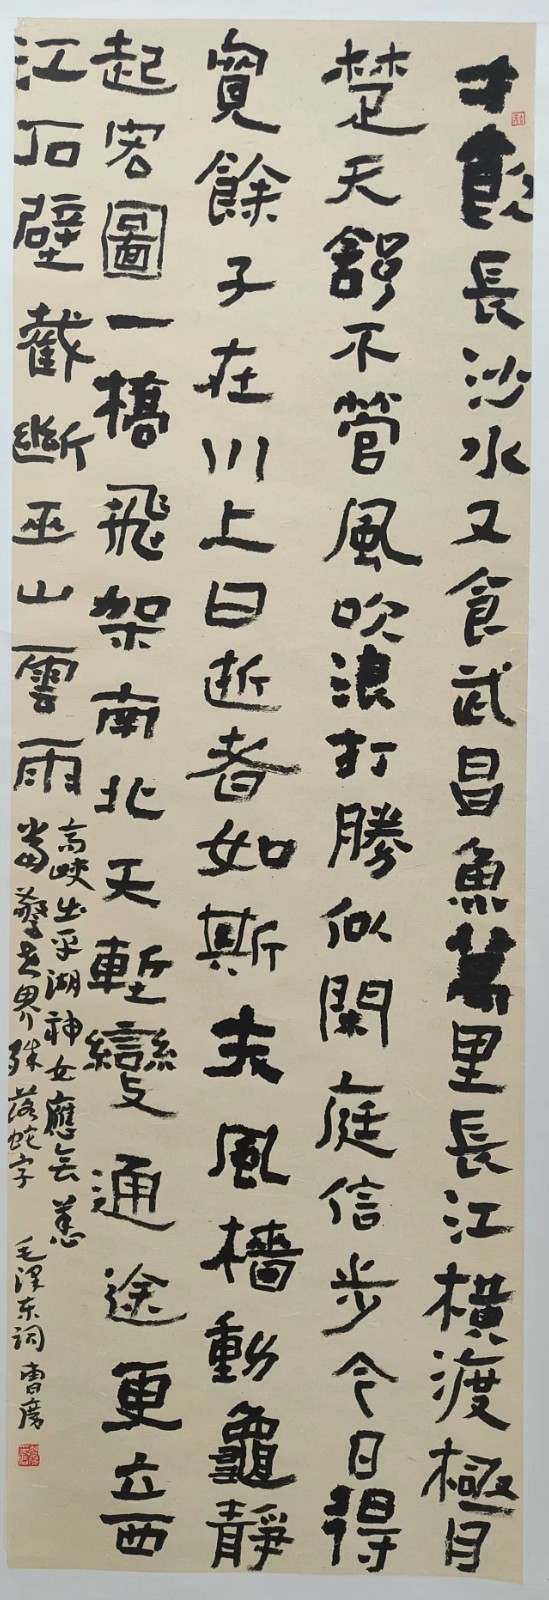 才飲長沙水又食武昌魚萬里長江橫渡極目
楚天舒不管風吹浪打勝似閑庭信步今日得
寬餘子在川上曰逝者如斯夫風檣動龜靜
起宏圖一橋飛架南北天塹變通途更立西
江石壁截斷巫山雲雨
高峽出平湖神女應无恙
當驚世界殊 落蛇字 毛泽东詞 曹